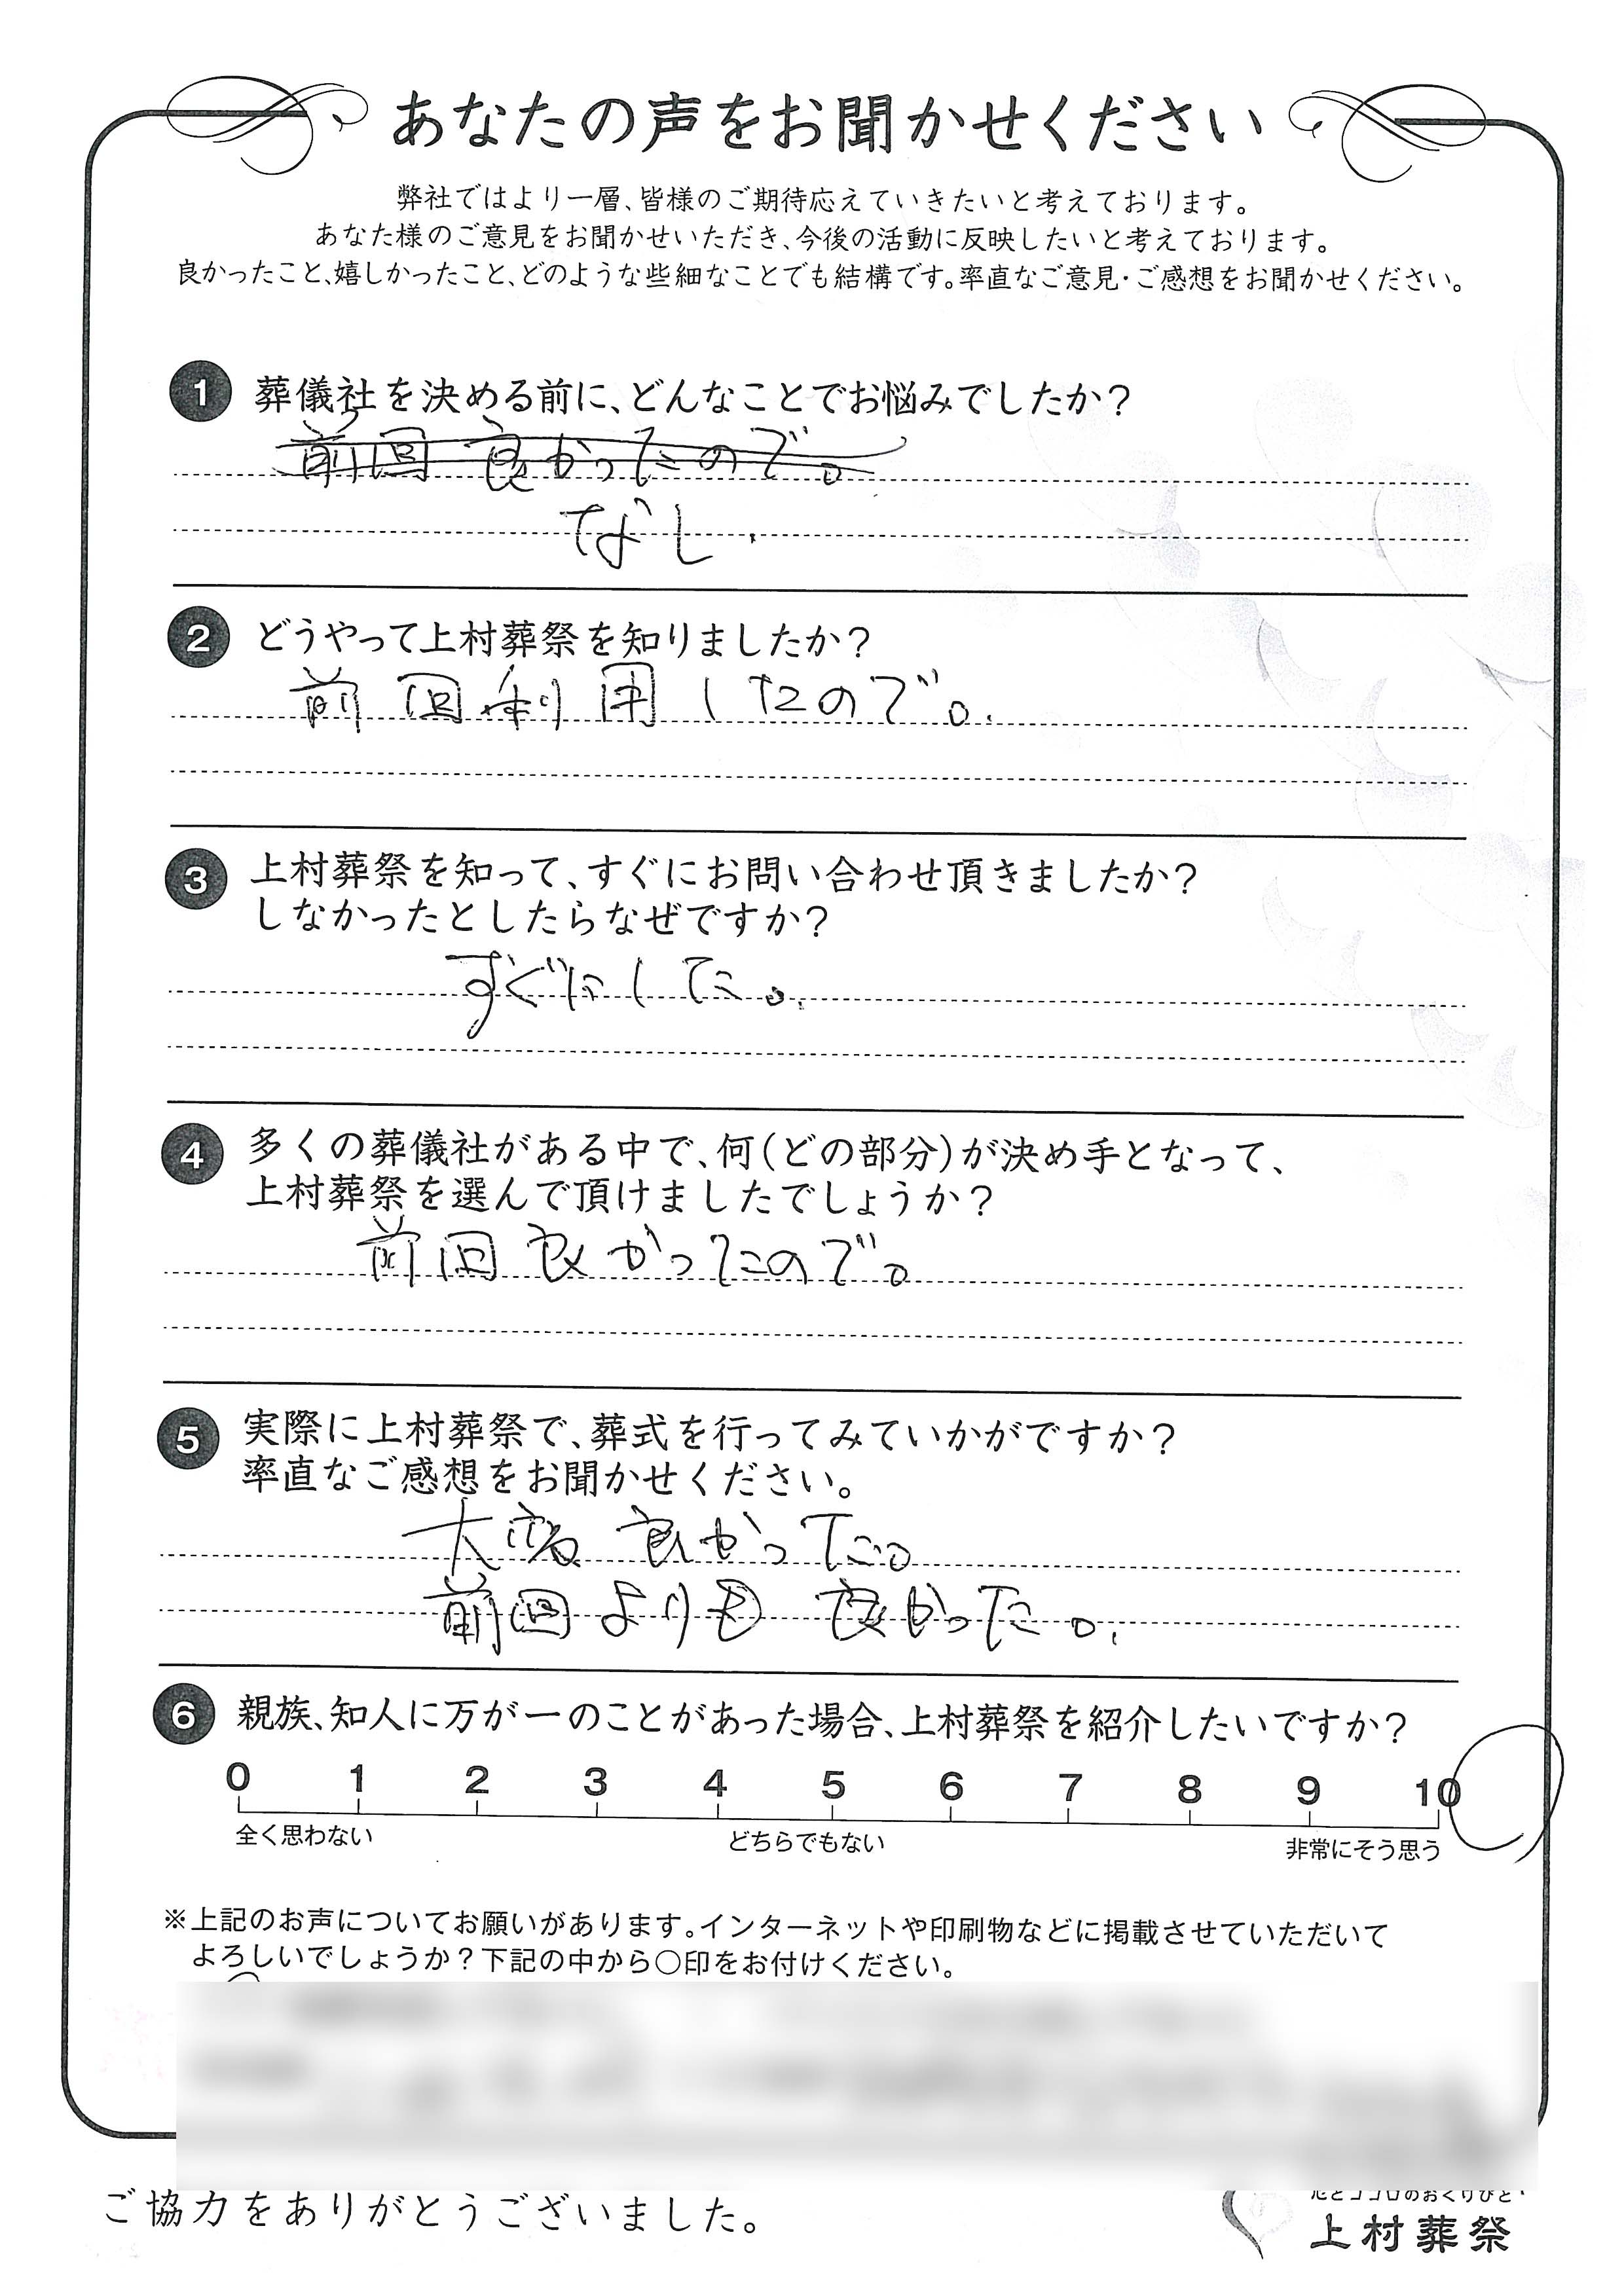 あなたの声をお聞かせください
弊社ではより一層、皆様のご期待応えていきたいと考えております。
あなた様のご意見をお聞かせいただき、今後の活動に反映したいと考えております。
良かったこと、嬉しかったこと、どのような些細なことでも結構です。率直なご意見・ご感想をお聞かせください。
1 葬儀社を決める前に、どんなことでお悩みでしたか？
前回良かったので。
なし.
2 どうやって上村葬祭を知りましたか？
前回利用したので。
3 上村葬祭を知って、すぐにお問い合わせ頂きましたか？
しなかったとしたらなぜですか？
すぐにした。
4 多くの葬儀社がある中で、何（どの部分）が決め手となって、
上村葬祭を選んで頂けましたでしょうか？
前回良かったので。
5 実際に上村葬祭で、葬式を行ってみていかがですか？
率直なご感想をお聞かせください。
大変良かった。
前回よりも良かった。
6 親族、知人に万が一のことがあった場合、上村葬祭を紹介したいですか？
0 1 2 3 4 5 6 7 8 9 10
全く思わない どちらでもない 非常にそう思う
※上記のお声についてお願いがあります。インターネットや印刷物などに掲載させていただいて
よろしいでしょうか？下記の中から○印をお付けください。
ご協力をありがとうございました。
上村葬祭